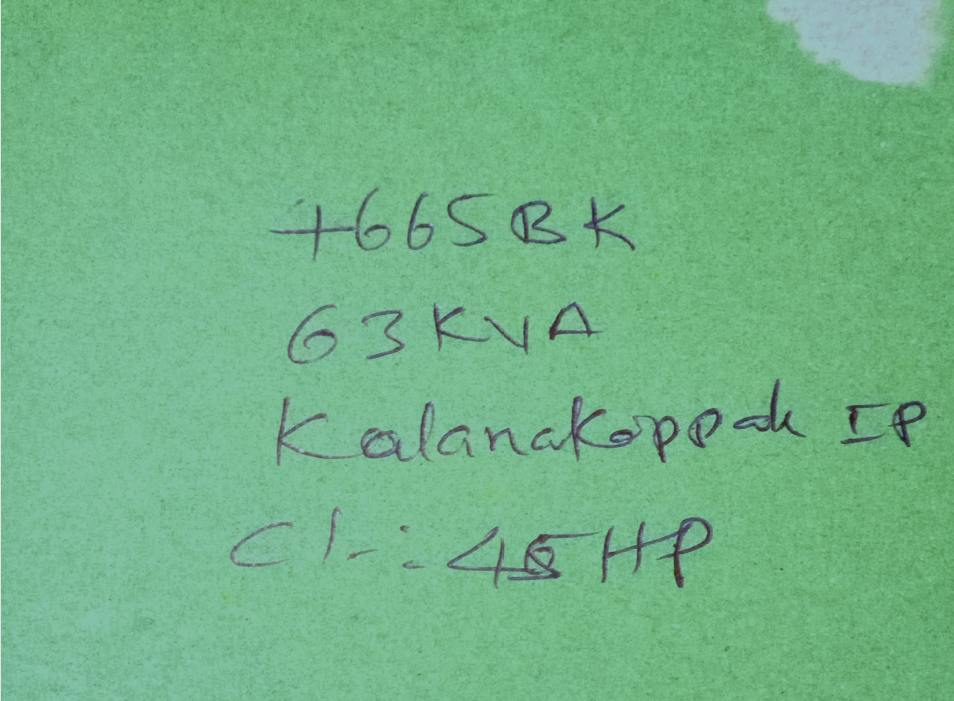 +665BK
63KVA
Kalanakoppah IP
Cl-: 45HP